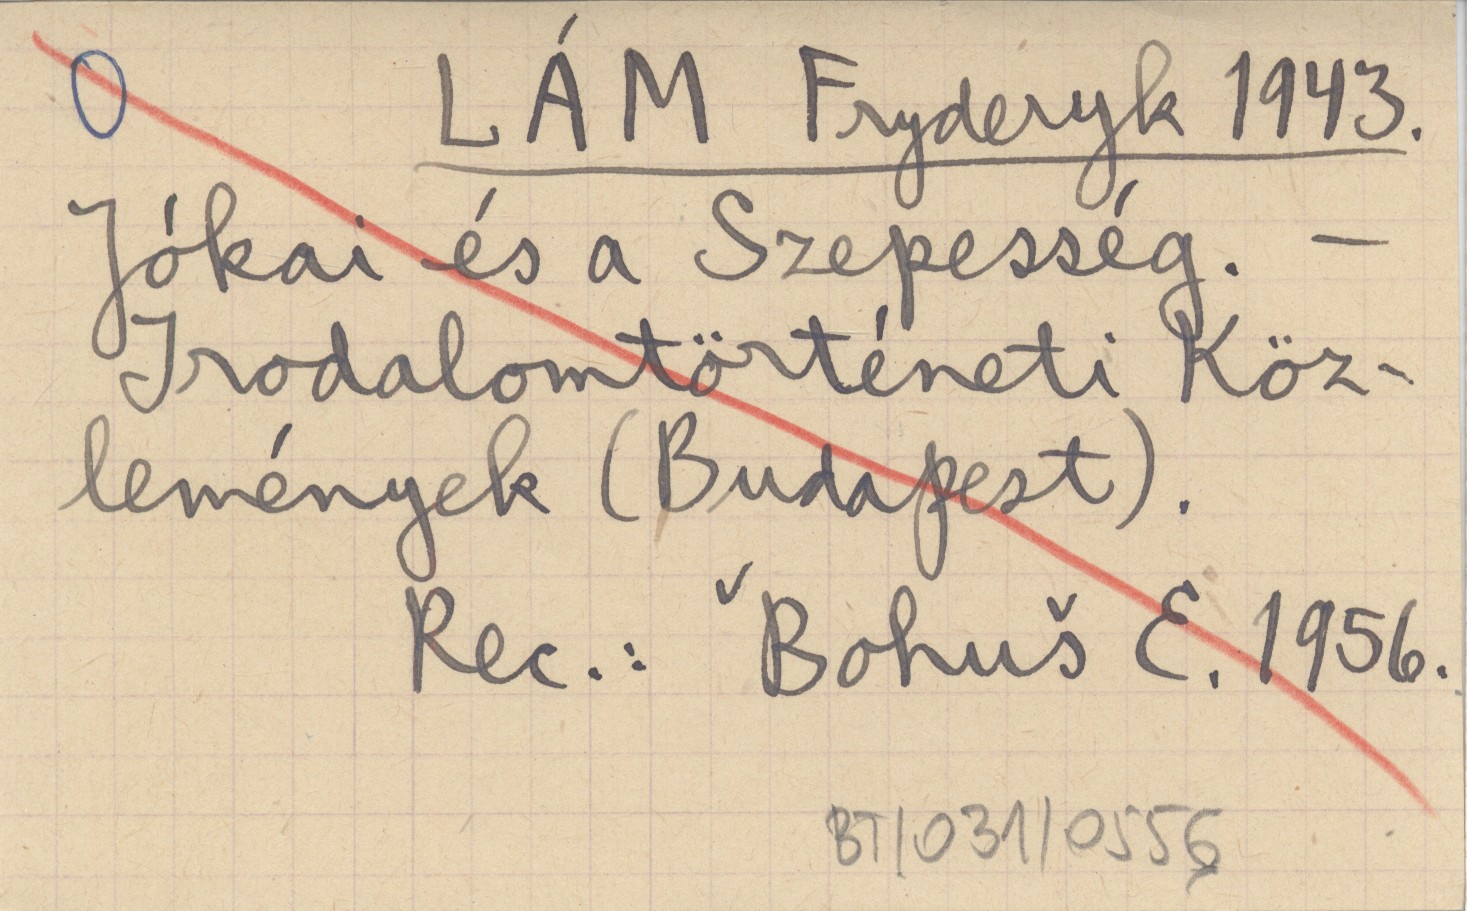 0 LÁM Fryderyk 1943.
Jókai és a Szepesség. —
Irodalomtörténeti Köz-
lemények (Budapest).
Rec.: ˇBohuš E. 1956.
BT/031/0556